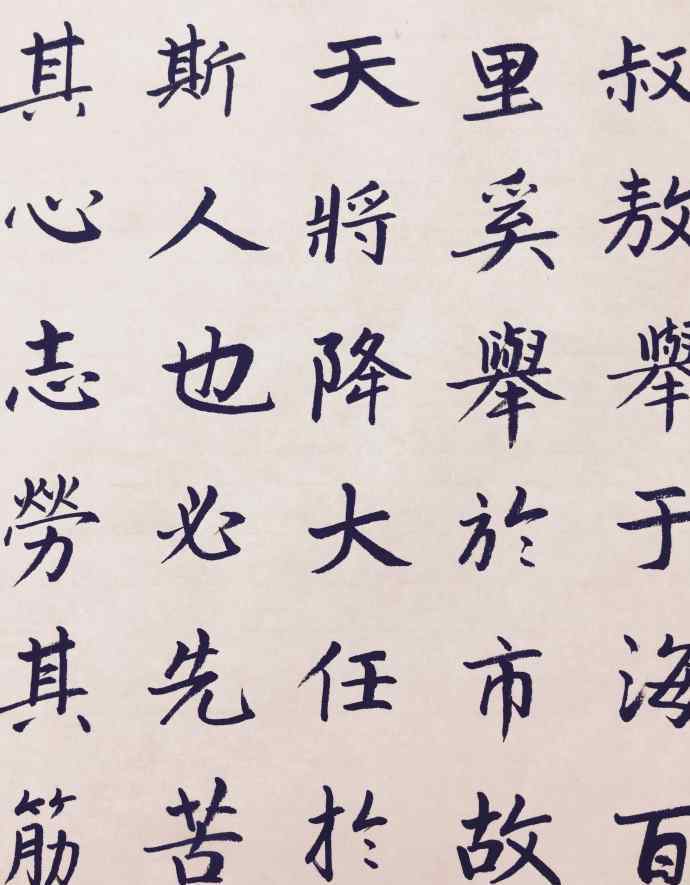 叔敖舉于海百
里奚舉於市故
天將降大任於
斯人也必先苦
其心志勞其筋